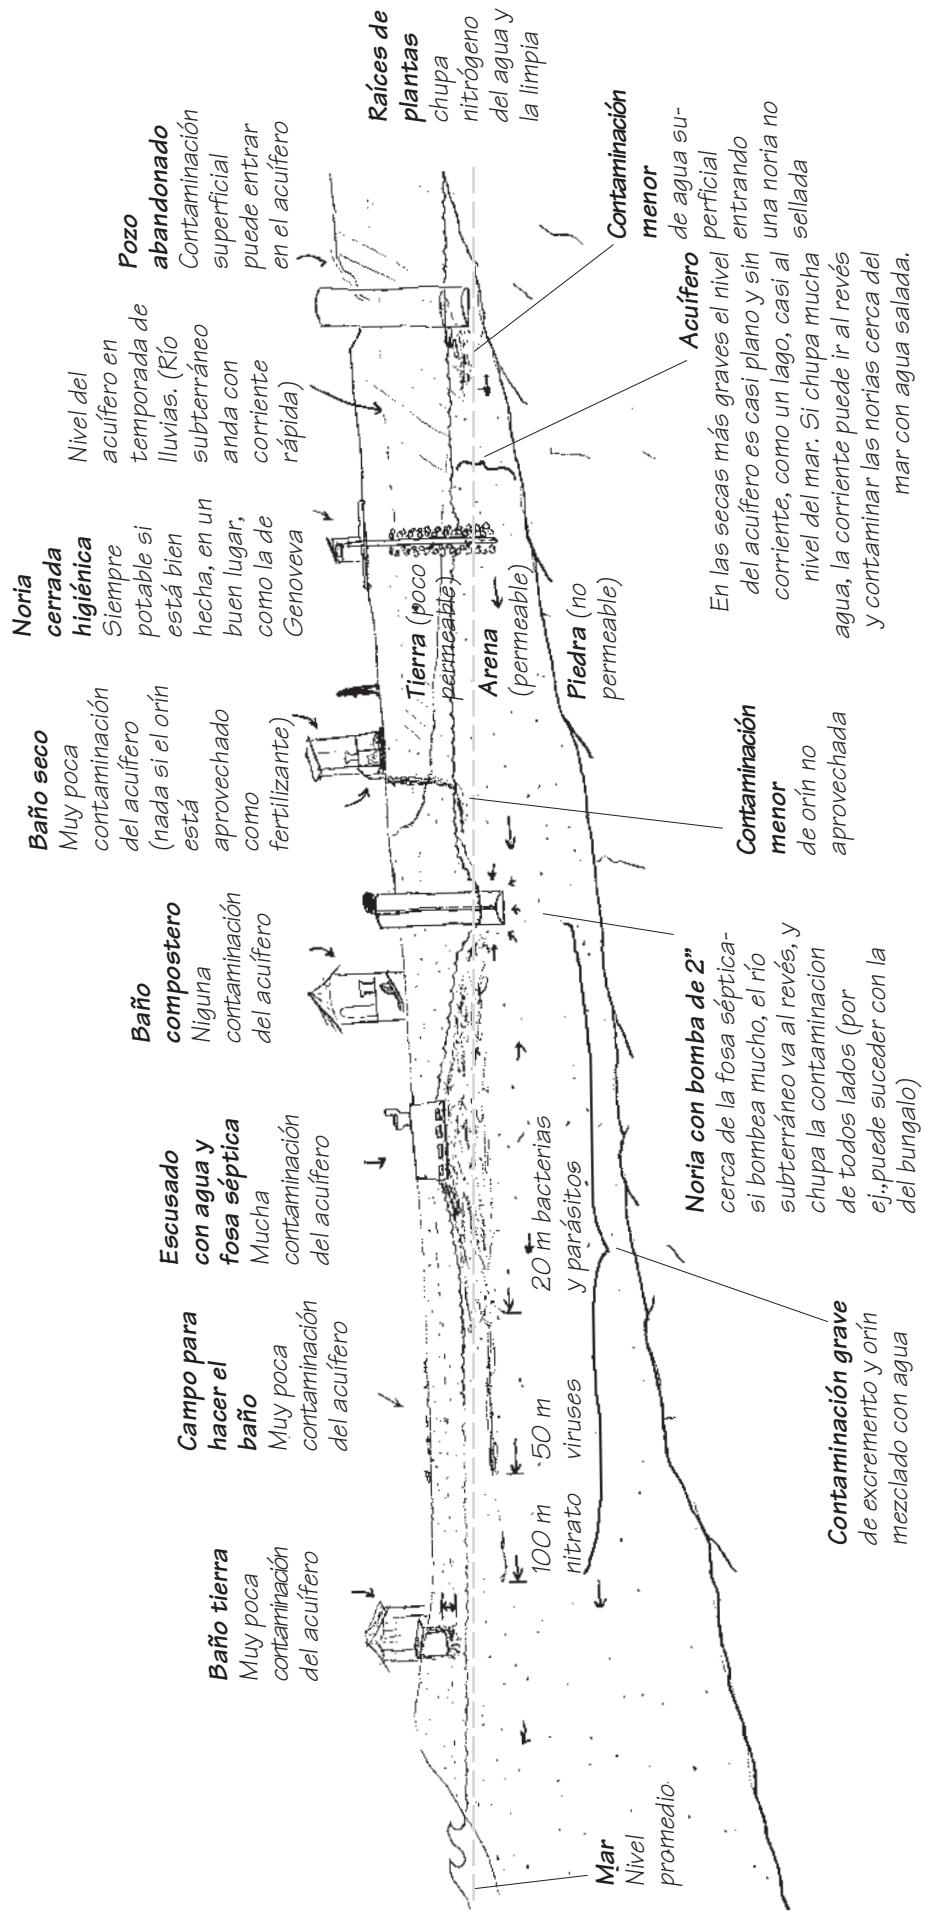 Baño tierra
Muy poca
contaminación
del acuífero
Campo para
hacer el
baño
Muy poca
contaminación
del acuífero
Escusado
con agua y
fosa séptica
Mucha
contaminación
del acuífero
Baño
compostero
Niguna
contaminación
del acuífero
Baño seco
Muy poca
contaminación
del acuífero
(nada si el orín
está
aprovechado
como
fertilizante)
Noria
cerrada
higiénica
Siempre
potable si
está bien
hecha, en un
buen lugar,
como la de
Genoveva
Nivel del
acuífero en
temporada de
lluvias. (Río
subterráneo
anda con
corriente
rápida)
Pozo
abandonado
Contaminación
superficial
puede entrar
en el acuífero
Raíces de
plantas
chupa
nitrógeno
del agua y
la limpia
Tierra (poco
permeable)
Arena
(permeable)
Piedra (no
permeable)
100 m
nitrato
50 m
viruses
20 m bacterias
y parásitos
Mar
Nivel
promedio
Contaminación grave
de excremento y orín
mezclado con agua
Noria con bomba de 2"
cerca de la fosa séptica-
si bombea mucho, el río
subterráneo va al revés, y
chupa la contaminacion
de todos lados (por
ej.,puede suceder con la
del bungalo)
Contaminación
menor
de orín no
aprovechada
Acuífero
En las secas más graves el nivel
del acuífero es casi plano y sin
corriente, como un lago, casi al
nivel del mar. Si chupa mucha
agua, la corriente puede ir al revés
y contaminar las norias cerca del
mar con agua salada.
Contaminación
menor
de agua su-
perficial
entrando
una noria no
sellada